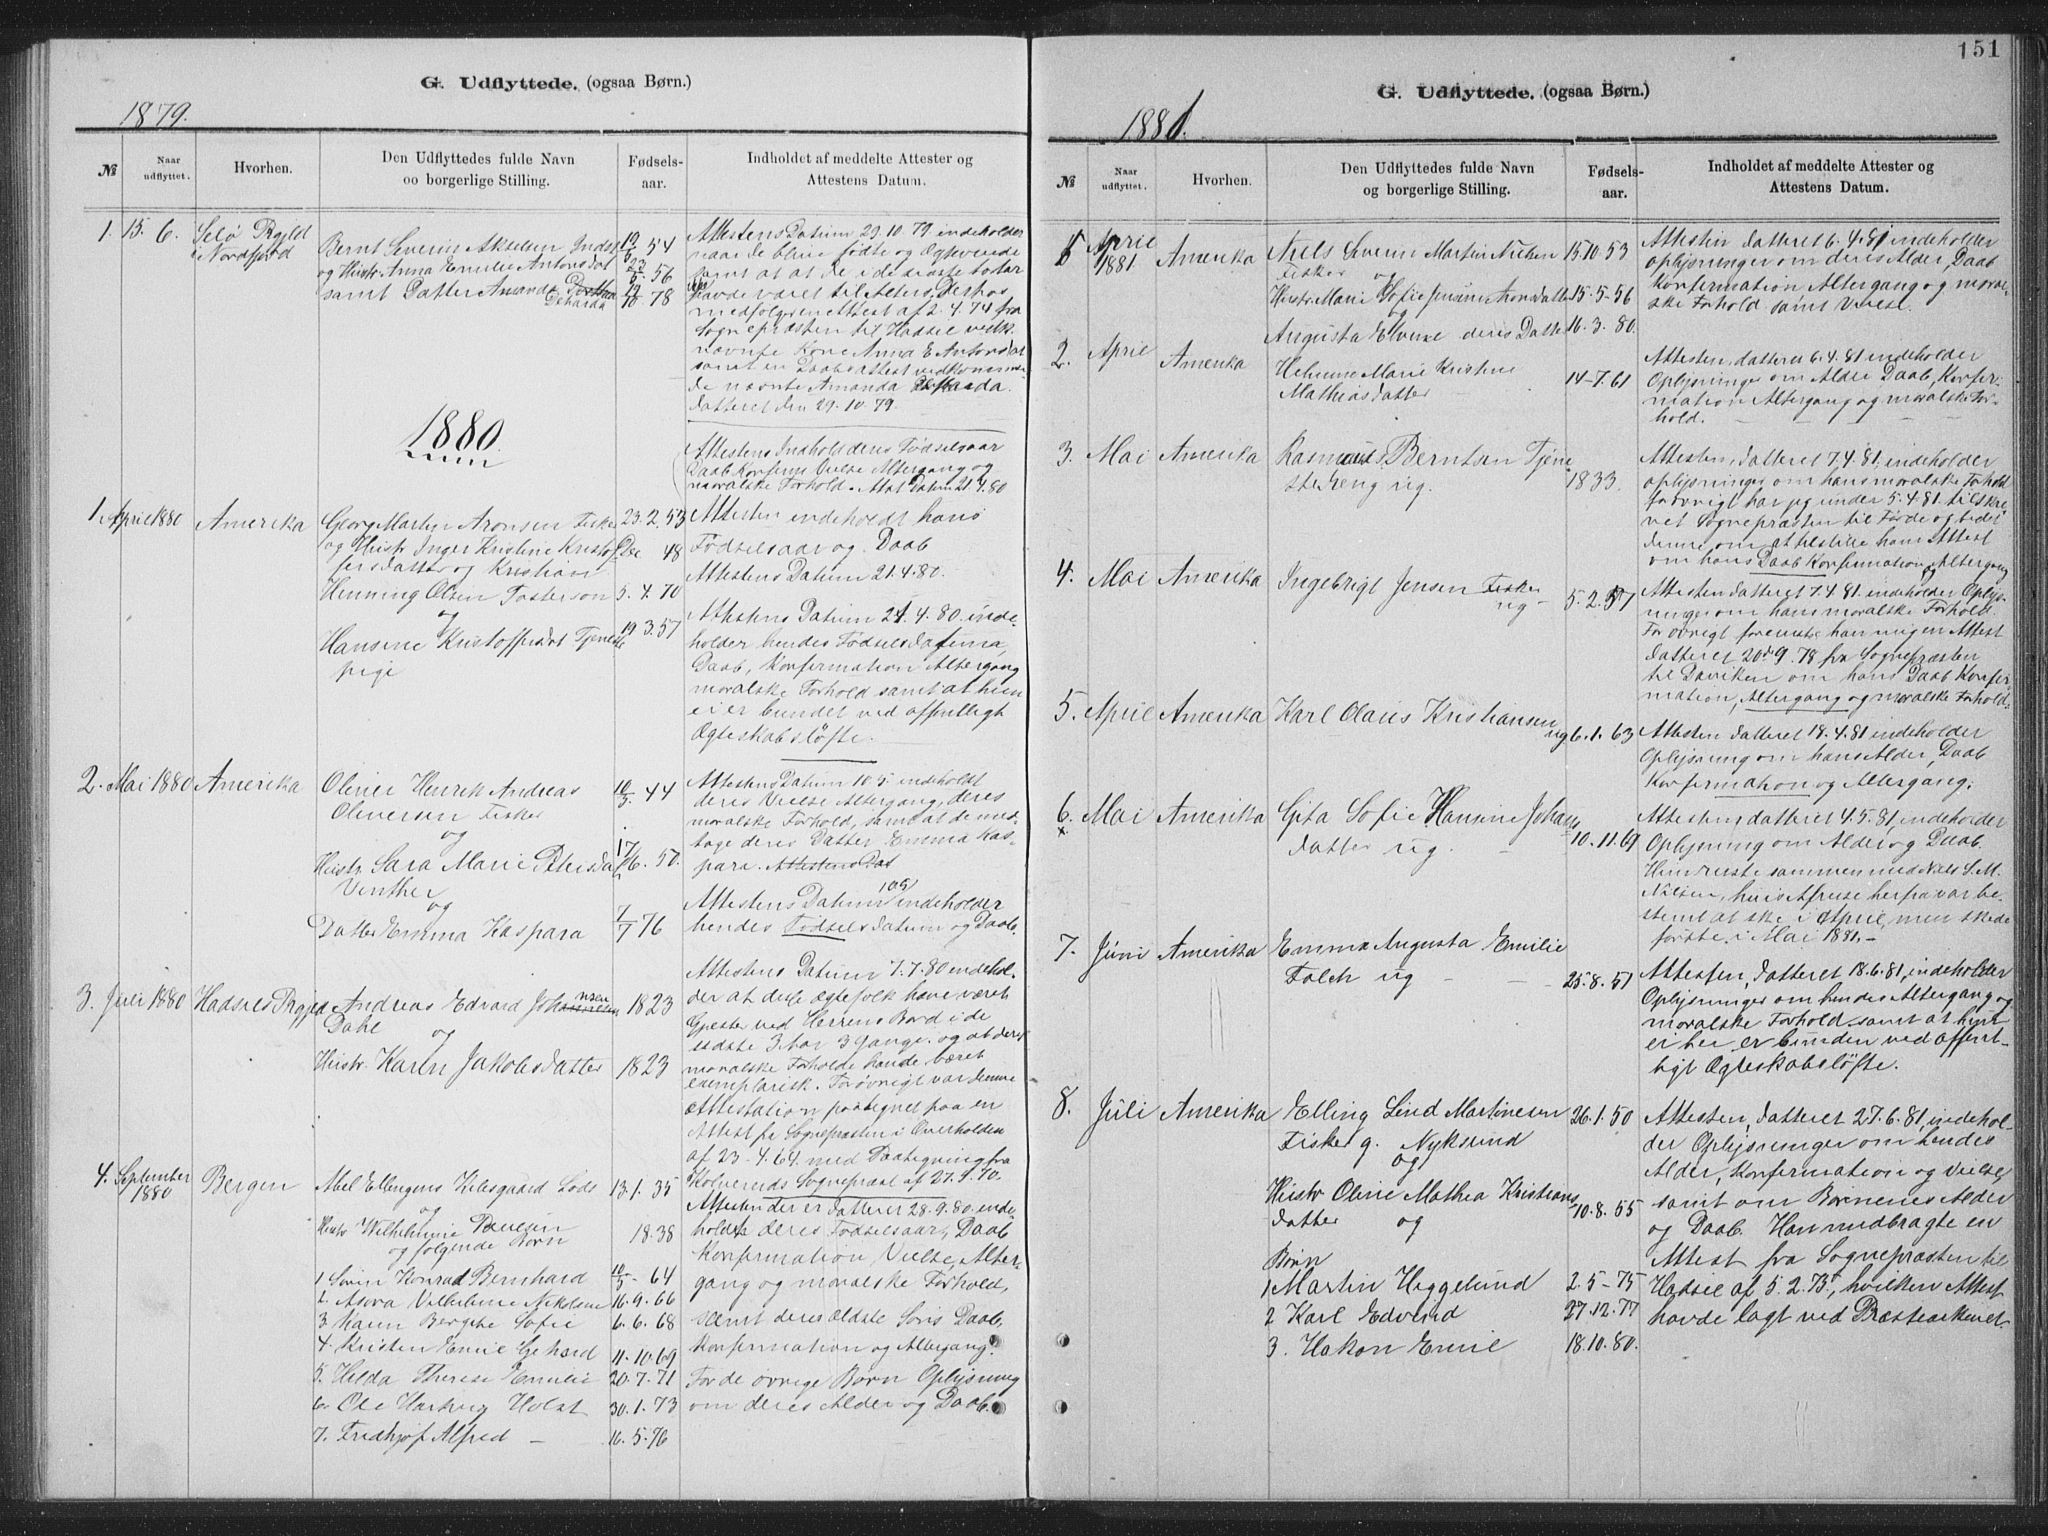 G. Udflyttede. (ogsaa Børn.)
1879.
№
Naar udflyttet.
Hvorhen.
Den Udflyttedes fulde Navn
oo borgerlige Stilling.
Fødsels-
aar.
Indholdet af meddelte Attester og
Attestens Datum.
1. 15. 6. Selø Prgjld
Nordfjord
Bernt Severin Akselsen Indst
og Hustr. Anna Emilie Antonsdat
samt Datter Amanda
Deharda
54
56
78
Attestens Datum 29.10.79 indeholder
naar de blive fødte og Ægteviede
samt at de i de sidste to Aar
havde været til Alters. Derhos
medfølger en Attest af 2.4.74 fra
Sognepræsten til Hadsel vedk.
nævnte Kone Anna E. Antonsdat
samt en Daabsattest vedkommen-
de nævnte Amanda Deharda.
datteret den 29.10.79.
1880.
Attestens Indhold deres Fødselsaar
Daab Konfirm Vielse Altergang og
moralske Forhold. Attst Datum 21.4.80
1 April 1880 Amerika
Georg Martin Aronsen Fisker
og Hustr Inger Kristine Kristof-
fersdatter og Kristian
Henning Olsen Fosterson
og
Hansine Kristoffersdat Tjeneste
pige
23.2.53
Dec 48
5.4.70
19.3.57
Attesten indeholdt hans
Fødselsaar og Daab
Attestens Datum 21.4.80.
Attestens Datum 21.4.80. inde-
holder hendes Fødselsdatum,
Daab, Konfirmation, Altergang
moralske Forhold samt at hun
ei er bunden ved offentligt
Ægteskabsløfte.
2. Mai 1880 Amerika
Oliver Henrik Andreas
Oliversen Fisker
og
Hustr. Sara Marie Petersdat
Vinther
og
Datter Emma Kaspara
10/5. 44
17/6. 50
7/7 76
Attestens Datum 10.5. indeholdt
deres Vielse Altergang, deres
moralske Forhold, samt at de med-
tage deres Datter Emma Kas-
para. Attestens Dat
Attestens Datum 10/5 indeholder
hendes Fødselsdatum og Daab.
3. Juli 1880 Hadsels Prgjd
Andreas Edvard Johannsen
Dahl
og
Hustr. Karen Jakobsdatter
1823
1823
Attestens Datum 7.7.80 indehol-
der at disse Ægtefolk have været
Gjester ved Herrens Bord i de
sidste 3 Aar 3 Gange. og at deres
moralske Forholde havde været
exemplarisk. Forøvrigt var denne
Attestation paategnet paa en
Attest fr. Sognepræsten i Overhalden
af 23.4.64. med Paategning fra
Kolvereids Sognepræst af 27.9.70.
4. September
1880
Bergen
Abel Ellingens Kildgaard Lods
og
Hustr. Wilhelmine
og følgende Børn
1 Søren Konrad Bernhard
2. Asora Vilhelmine Nikoline
3 Karen Bergitte Sofie
4. Kristen Emil Gehard
5. Hilda Therese Emilie
6. Ole Hartvig Holst
7. Fridhjof Alfred —
13.1.35
18.38
10/5 - 64
16.9.66
6.6.68
11.10.69
20.7.71
30.1.73
16.5.76
Attesten der er datteret 28.9.80. inde-
holdt deres Fødselsaar, Daab
Konfirmation, Vielse, Alter-
gang og moralske Forhold,
samt deres ældste Søns Daab,
Konfirmation og Altergang.
For de øvrige Børn Oplysning
om deres Alder og Daab.
151
G. Udflyttede. (ogsaa Børn.)
1881.
№
Naar udflyttet.
Hvorhen.
Den Udflyttedes fulde Navn
og borgerlige Stilling.
Fødsels-
aar.
Indholdet af meddelte Attester og
Attestens Datum.
1 April
1881. Amerika
Niels Severin Martin Nielsen
Fisker og
Hustr. Marie Sofie Jensine Aronsdatter
og
Augusta Elvine deres Datter
15.10.53
15.5-56
16.3.80.
Attesten datteret 6.4.81 indeholder
oplysninger om deres Alder, Daab
Konfirmation Altergang og moral-
ske Forhold samt Vielse.
2. April Amerika
Helmine Marie Kristine
Mathiasdatter
14-7.61
Attesten, datteret 6.4.81, indeholder
Oplysninger om Alder Daab, Konfir-
mation Altergang og moralske For-
hold.
3. Mai Amerika
Rasmus Berntsen Tjene-
stedreng ug.
1833.
Attesten, datteret 7.4.81, indeholder
oplysninger om hans moralske Forhold
forøvrigt har jeg under 5.4.81. tilskre-
vet Sognepræsten til Førde og bedet
denne om at tilstille ham Attest
om hans Daab Konfirmation og Altergang
4. Mai Amerika
Ingebrigt Jensen Fisker
ug —
5.2.57
Attesten datteret 7.4.81, indeholder Oplys-
ninger om hans moralske Forhold.
Forøvrigt foreviste han mig en Attest
datteret 20de 9.78 fra Sognepræsten
til Daviken om hans Daab Konfir-
mation, Altergang og moralske Forhold.
5. April Amerika
Karl Olaus Kristiansen
ug
6.1.63
Attesten datteret 18.4.81 indeholder
Oplysning om hans Alder, Daab
Konfirmation og Altergang.
6. Mai Amerika
Gita Sofie Hansine Johans
datter ug.
10.11.69
Attesten, datteret 4.5.81, indeholder
Oplysning om Alder og Daab.
Hun reiste sammen med Niels S. M.
Nilsen, hvis Afreise herfra var be-
stemt at ske i April, men skede
først i Mai 1881.—
7. Juni Amerika
Emma Augusta Emilie
Falch ug
25.8.51
Attesten, datteret 18.6.81, indeholder
Oplysninger om hendes Altergang og
moralske Forhold samt at hun
er bunden ved offent-
ligt Ægteskabsløfte.
8. Juli Amerika
Elling Lind Martinesen
Fisker g. Nyksund
og
Hustr Oline Mathea Kristians
datter og
Børn
1 Martin Heggelund
2 Karl Edvard
3. Hakon Emil
26.1.50
10.8.55
2.5-75
27.12.77
18.10.80.
Attesten, datteret 27.6.81, indehol-
der Oplysninger om hendes
Alder, Konfirmation og Vielse,
samt om Børnenes Alder
og Daab. Han medbragte en
Attest fra Sognepræsten til
Hadsel af 5.2.75, hvilken Attest
havde lagt ved Præstearkivet.